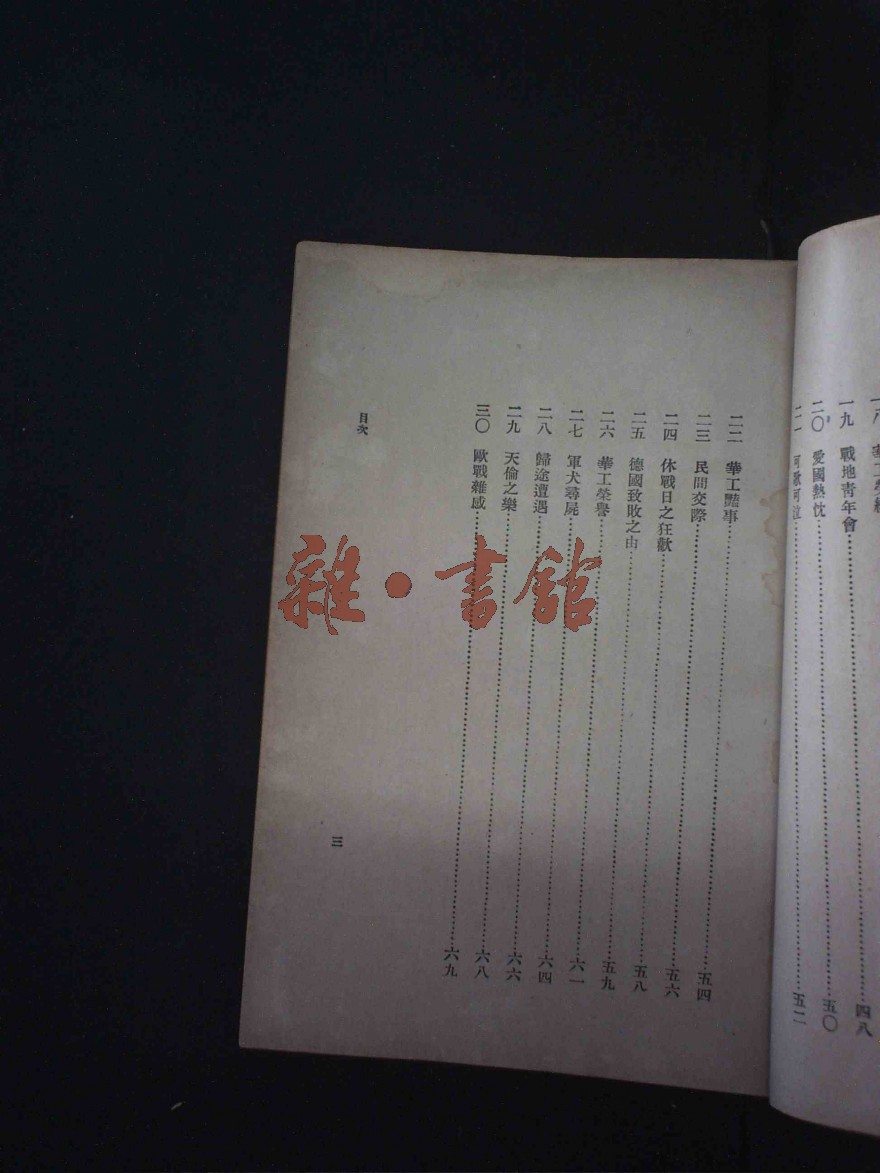 一九 戰地青年會 四八
二〇 愛國熱忱 五〇
二一 可歌可泣 五二
二二 華工豔事 五四
二三 民間交際 五六
二四 休戰日之狂歡 五八
二五 德國致敗之由 五九
二六 華工榮譽 六一
二七 軍犬尋屍 六四
二八 歸途遭遇 六六
二九 天倫之樂 六八
三〇 歐戰雜感 六九
目次
三
雜·書館